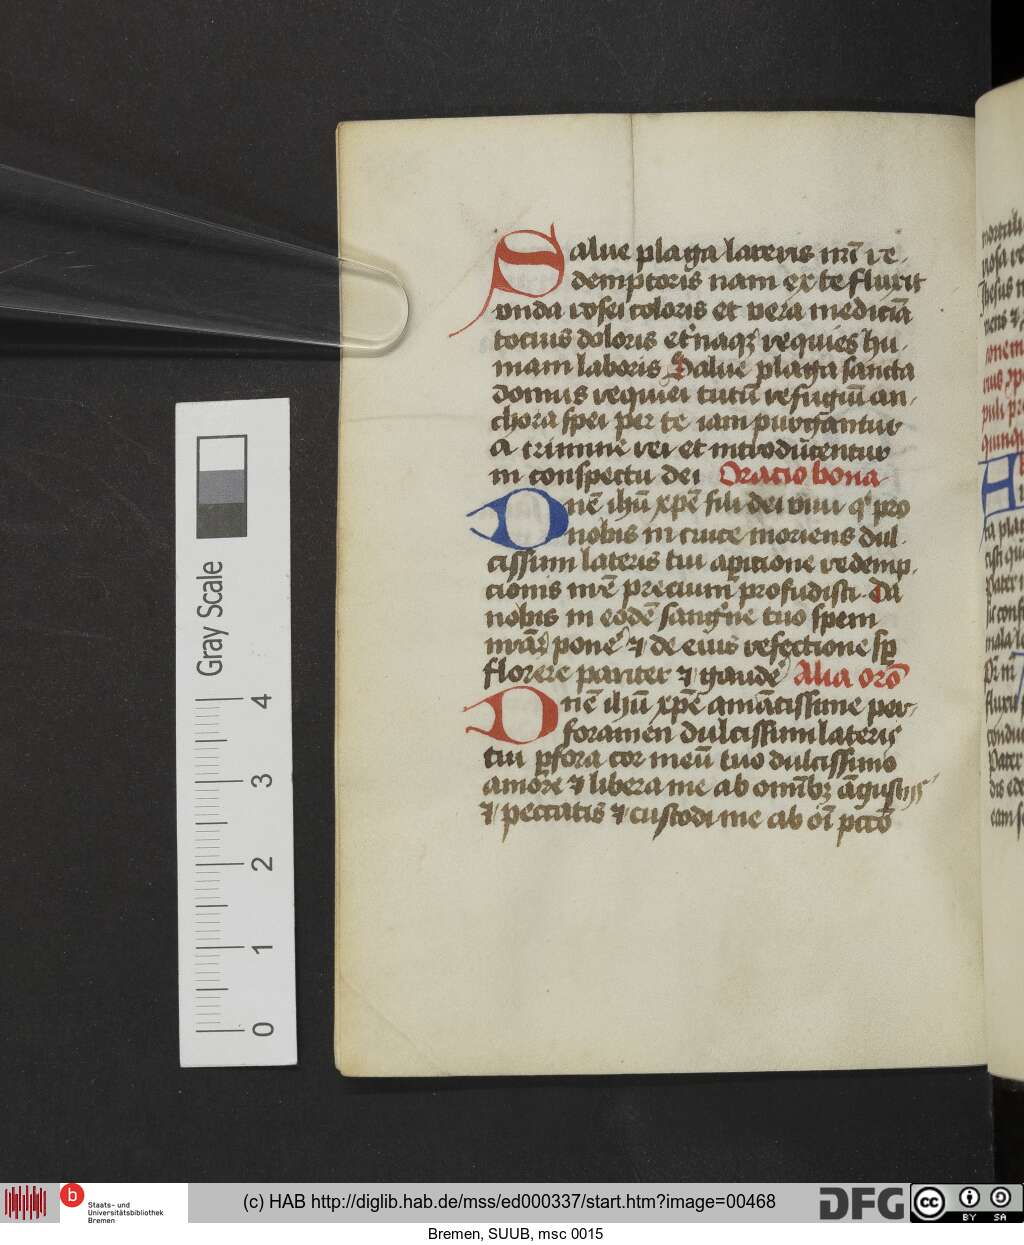 Salue plaga lateris nr̄i re-
demptoris nam ex te fluxit
vnda rosei coloris et vera medicīa
tocius doloris et naqȝ requies hu-
mani laboris Salue plaga sancta
domus requiei tutū refugiū an-
chora spei per te iam purgantur
a crimine rei et introducentur
in conspectu dei Oracio bona
Dnē ihū xpē fili dei viui q pro
nobis in cruce moriens dul-
cissimi lateris tui apicione redemp-
cionis nr̄e precium profudisti Da
nobis in eodē sangne tuo spem
pone ⁊ de eius refectione sp
florere pariter ⁊ gaudē Alia orō
Dnē ihū xpē amātissime per
foramen dulcissimi lateris
tui pfora cor meū tuo dulcissimo
amore ⁊ libera me ab omībȝ āgustijs
⁊ peccatis ⁊ custodi me ab oī pctō
Gray Scale
4
3
2
1
0
Staats- und
Universitätsbibliothek
Bremen
(c) HAB http://diglib.hab.de/mss/ed000337/start.htm?image=00468
DFG
cc BY SA
Bremen, SUUB, msc 0015